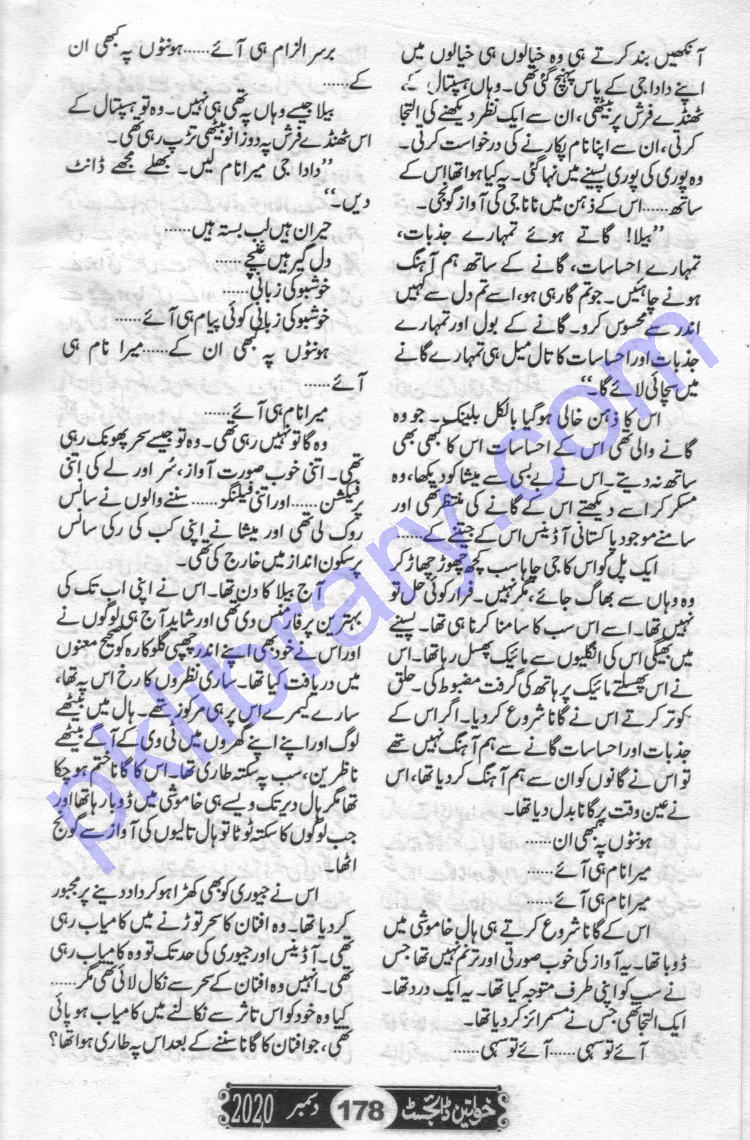 آنکھیں بند کرتے ہی وہ خیالوں ہی خیالوں میں
اپنے دادا جی کے پاس پہنچ گئی تھی۔ وہاں ہسپتال کے
ٹھنڈے فرش پر بیٹھی، ان سے ایک نظر دیکھنے کی التجا
کرتی، ان سے اپنا نام پکارنے کی درخواست کرتی۔
وہ پوری کی پوری پسینے میں نہا گئی۔ یہ کیا ہوا تھا اس کے
ساتھ...... اس کے ذہن میں نانا جی کی آواز گونجی۔
”بیلا! گاتے ہوئے تمہارے جذبات،
تمہارے احساسات، گانے کے ساتھ ہم آہنگ
ہونے چاہئیں۔ جو تم گا رہی ہو، اسے تم دل سے کہیں
اندر سے محسوس کرو۔ گانے کے بول اور تمہارے
جذبات اور احساسات کا تال میل ہی تمہارے گانے
میں سچائی لائے گا۔“
اس کا ذہن خالی ہو گیا بالکل بلینک۔ جو وہ
گانے والی تھی اس کے احساسات اس کا کبھی بھی
ساتھ نہ دیتے۔ اس نے بے بسی سے میشا کو دیکھا، وہ
مسکرا کر اسے دیکھتے اس کے گانے کی منتظر تھی اور
سامنے موجود پاکستانی آڈینس اس کے جیتنے کے......
ایک پل کو اس کا جی چاہا سب کچھ چھوڑ چھاڑ کر
وہ وہاں سے بھاگ جائے، مگر نہیں۔ فرار کوئی حل تو
نہیں تھا۔ اسے اس سب کا سامنا کرنا ہی تھا۔ پسینے
میں بھیگی اس کی انگلیوں سے مائیک پھسل رہا تھا۔ اس
نے اس پھسلتے مائیک پر ہاتھ کی گرفت مضبوط کی۔ حلق
کو تر کرتے اس نے گانا شروع کر دیا۔ اگر اس کے
جذبات اور احساسات گانے سے ہم آہنگ نہیں تھے
تو اس نے گانوں کو ان سے ہم آہنگ کر دیا تھا، اس
نے عین وقت پر گانا بدل دیا تھا۔
ہونٹوں پہ کبھی ان......
میرا نام ہی آئے......
میرا نام ہی آئے......
اس کے گانا شروع کرتے ہی ہال خاموشی میں
ڈوبا تھا۔ یہ آواز کی خوب صورتی اور ترنم نہیں تھا جس
نے سب کو اپنی طرف متوجہ کیا تھا۔ یہ ایک درد تھا۔
ایک التجا تھی جس نے مسمرائز کر دیا تھا۔
آئے تو سہی...... آئے تو سہی......
برسر الزام ہی آئے...... ہونٹوں پہ کبھی ان
کے......
بیلا جیسے وہاں پہ تھی ہی نہیں۔ وہ تو ہسپتال کے
اس ٹھنڈے فرش پہ دوزانو بیٹھی تڑپ رہی تھی۔
”دادا جی میرا نام لیں۔ بھلے مجھے ڈانٹ
دیں۔“
حیران ہیں لب بستہ ہیں......
دل گیر ہیں غنچے......
خوشبو کی زبانی......
خوشبو کی زبانی کوئی پیام ہی آئے......
ہونٹوں پہ کبھی ان کے...... میرا نام ہی
آئے......
میرا نام ہی آئے......
وہ گا تو نہیں رہی تھی۔ وہ تو جیسے سحر پھونک رہی
تھی۔ اتنی خوب صورت آواز، سُر اور لے کی اتنی
پرفیکشن...... اور اتنی فیلنگز...... سننے والوں نے سانس
روک لی تھی اور میشا نے اپنی کب کی رکی سانس
پرسکون انداز میں خارج کی تھی۔
آج بیلا کا دن تھا۔ اس نے اپنی اب تک کی
بہترین پرفارمنس دی تھی اور شاید آج ہی لوگوں نے
اور اس نے خود بھی اپنے اندر چھپی گلوکارہ کو صحیح معنوں
میں دریافت کیا تھا۔ ساری نظروں کا رخ اس پہ تھا،
سارے کیمرے اس پر ہی مرکوز تھے۔ ہال میں بیٹھے
لوگ اور اپنے اپنے گھروں میں ٹی وی کے آگے بیٹھے
ناظرین، سب پہ سکتہ طاری تھا۔ اس کا گانا ختم ہو چکا
تھا مگر ہال دیر تک ویسے ہی خاموشی میں ڈوبا رہا تھا اور
جب لوگوں کا سکتہ ٹوٹا تو ہال تالیوں کی آواز سے گونج
اٹھا۔
اس نے جیوری کو بھی کھڑا ہو کر داد دینے پر مجبور
کر دیا تھا۔ وہ افنان کا سحر توڑنے میں کامیاب رہی
تھی۔ آڈینس اور جیوری کی حد تک تو وہ کامیاب رہی
تھی۔ انہیں وہ افنان کے سحر سے نکال لائی تھی مگر......
کیا وہ خود کو اس تاثر سے نکالنے میں کامیاب ہو پائی
تھی، جو افنان کا گانا سننے کے بعد اس پہ طاری ہوا تھا؟
خواتین ڈائجسٹ 178 دسمبر 2020
pklibrary.com